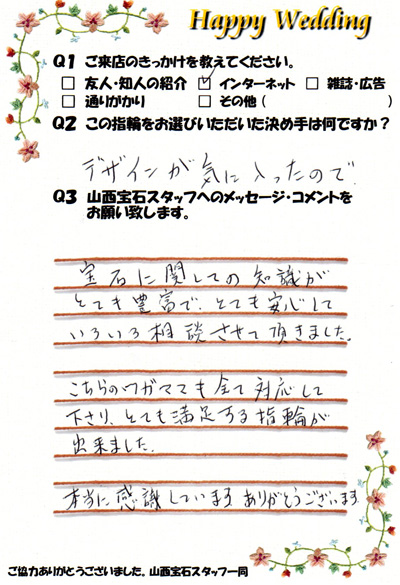 Happy Wedding
Q1 ご来店のきっかけを教えてください。
□ 友人・知人の紹介 ☑ インターネット □ 雑誌・広告
□ 通りがかり □ その他 ( )
Q2 この指輪をお選びいただいた決め手は何ですか？
デザインが気に入ったので
Q3 山西宝石スタッフへのメッセージ・コメントを
お願い致します。
宝石に関しての知識が
とても豊富で、とても安心して
いろいろ相談させて頂きました。
こちらのワガママも全て対応して
下さり、とても満足する指輪が
出来ました。
本当に感識しています ありがとうございます
ご協力ありがとうございました。山西宝石スタッフ一同